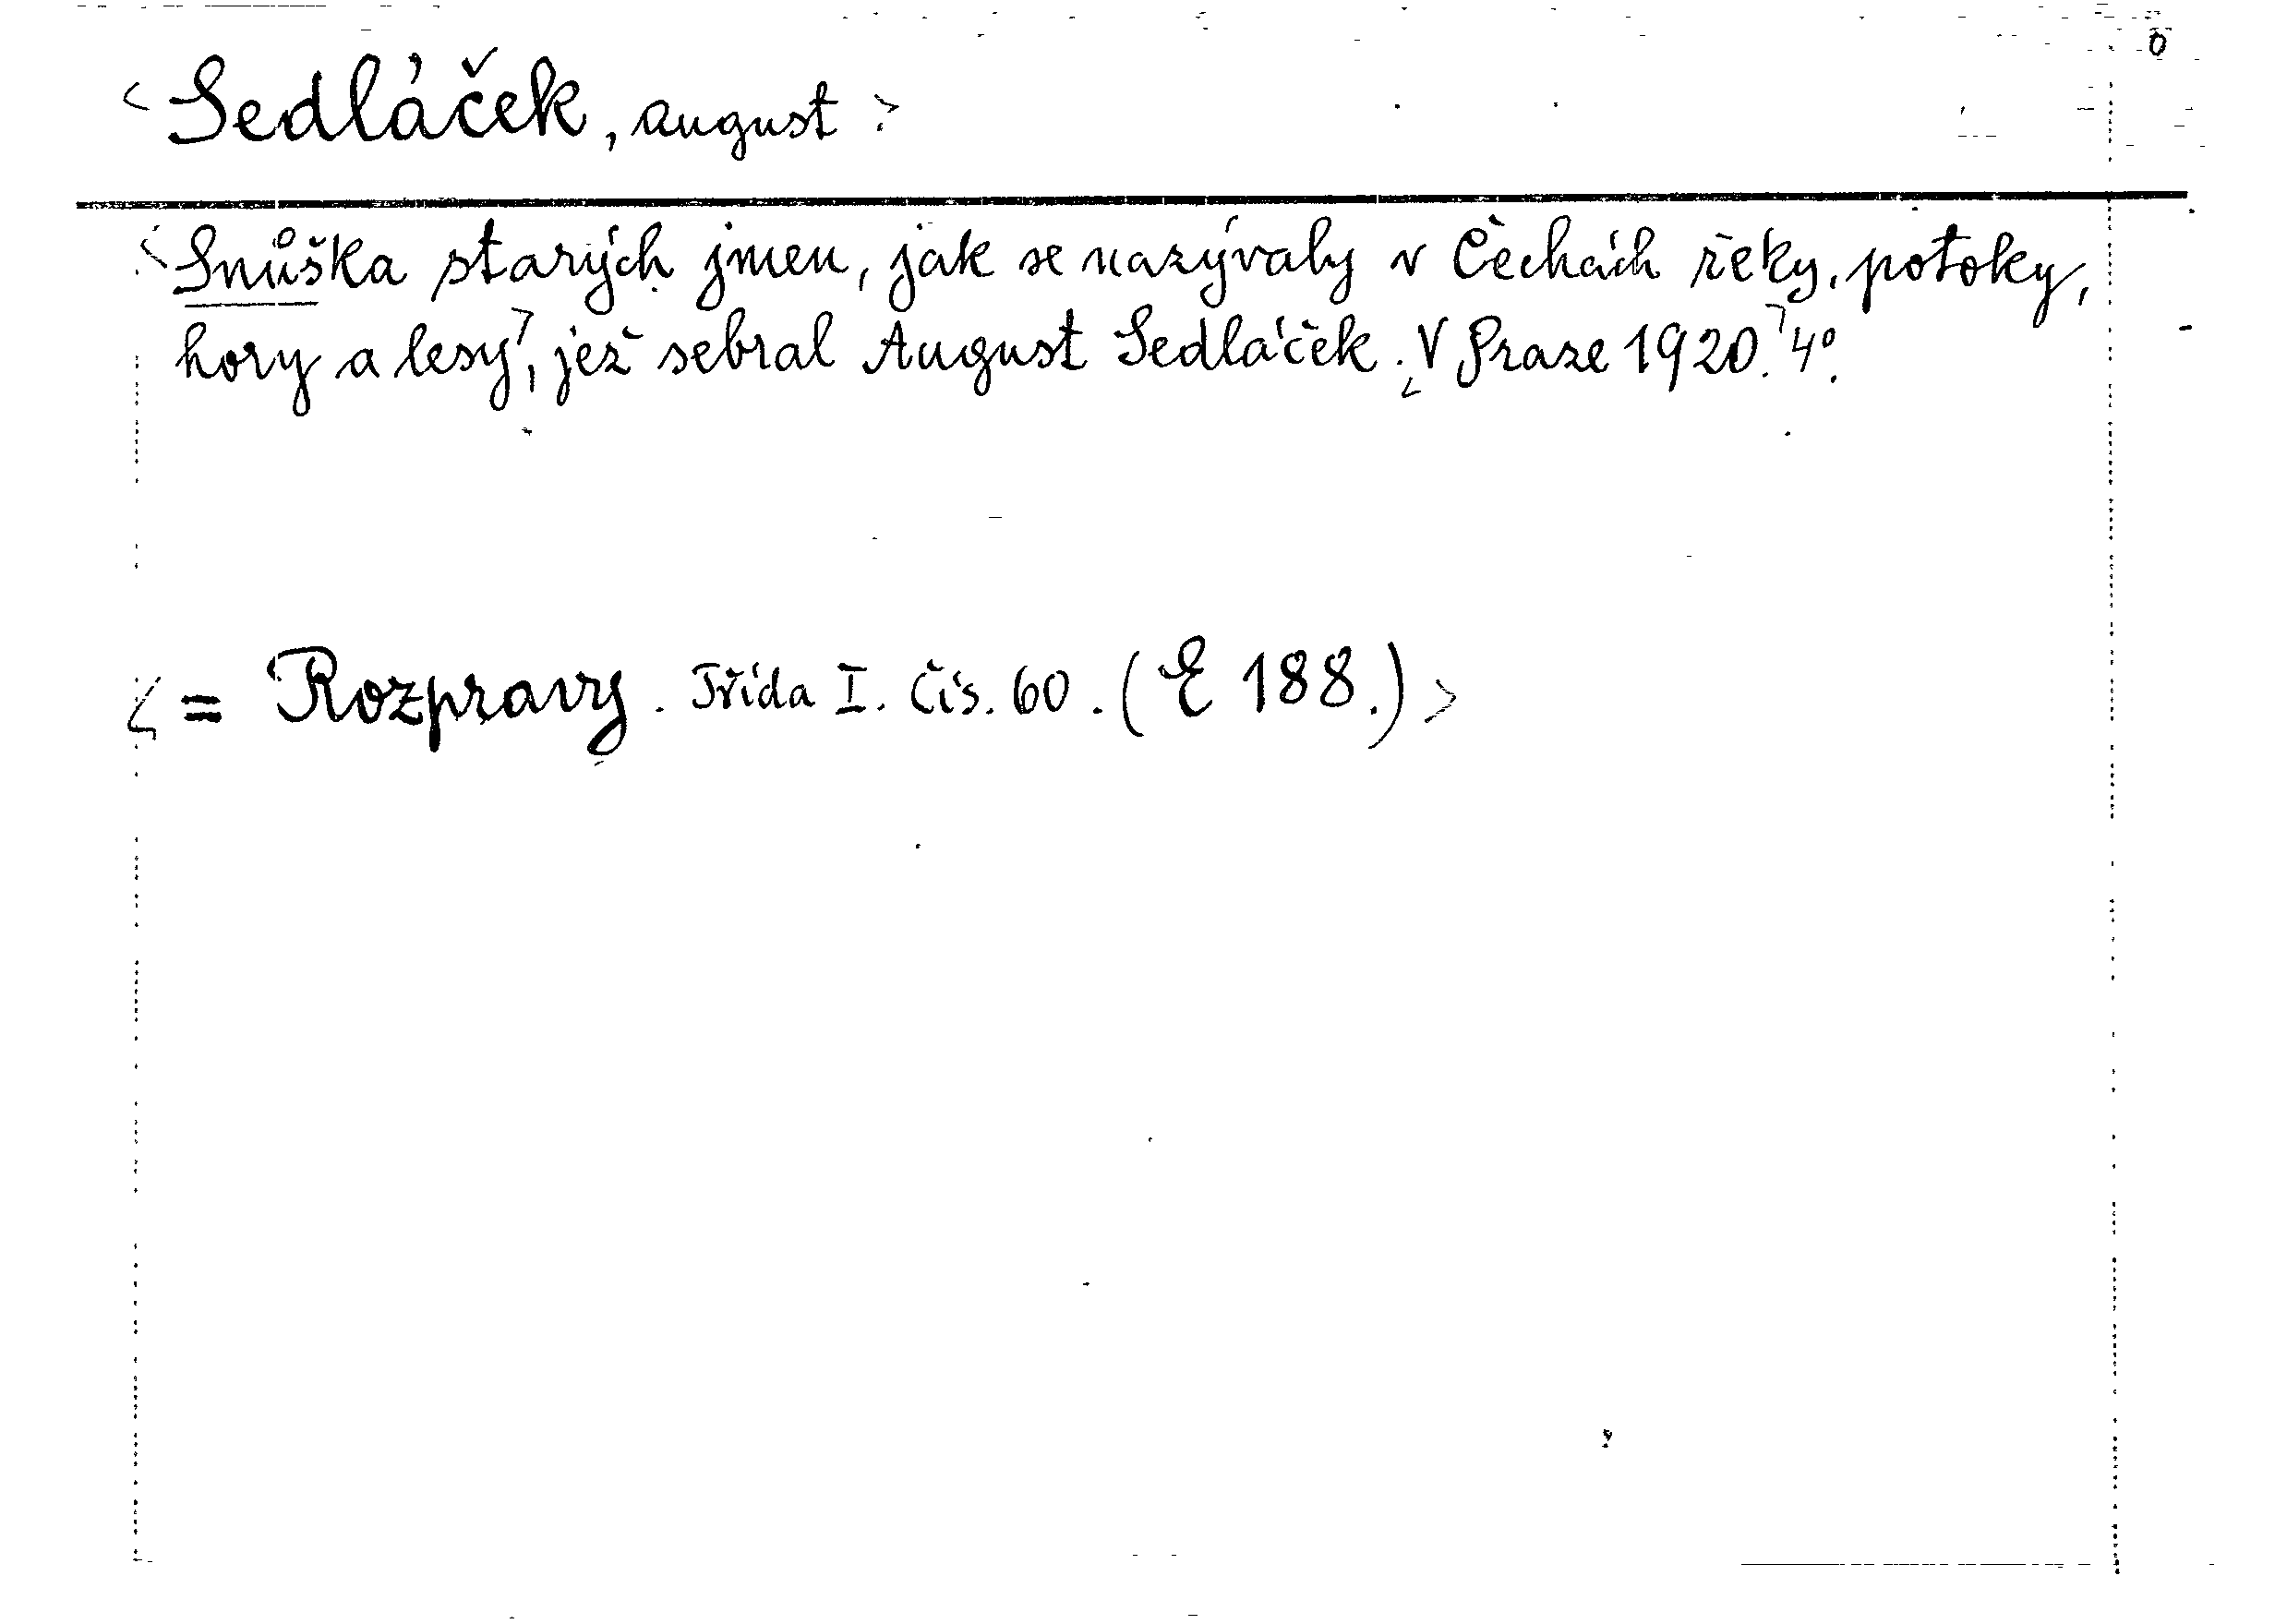 < Sedláček, August >
<Snůška starých jmen, jak se nazývaly v Čechách řeky, potoky,
hory a lesy>, jež sebral August Sedláček. <V Praze 1920.> 4°.
< = Rozpravy. Třída I. Čís. 60. (E 188.) >